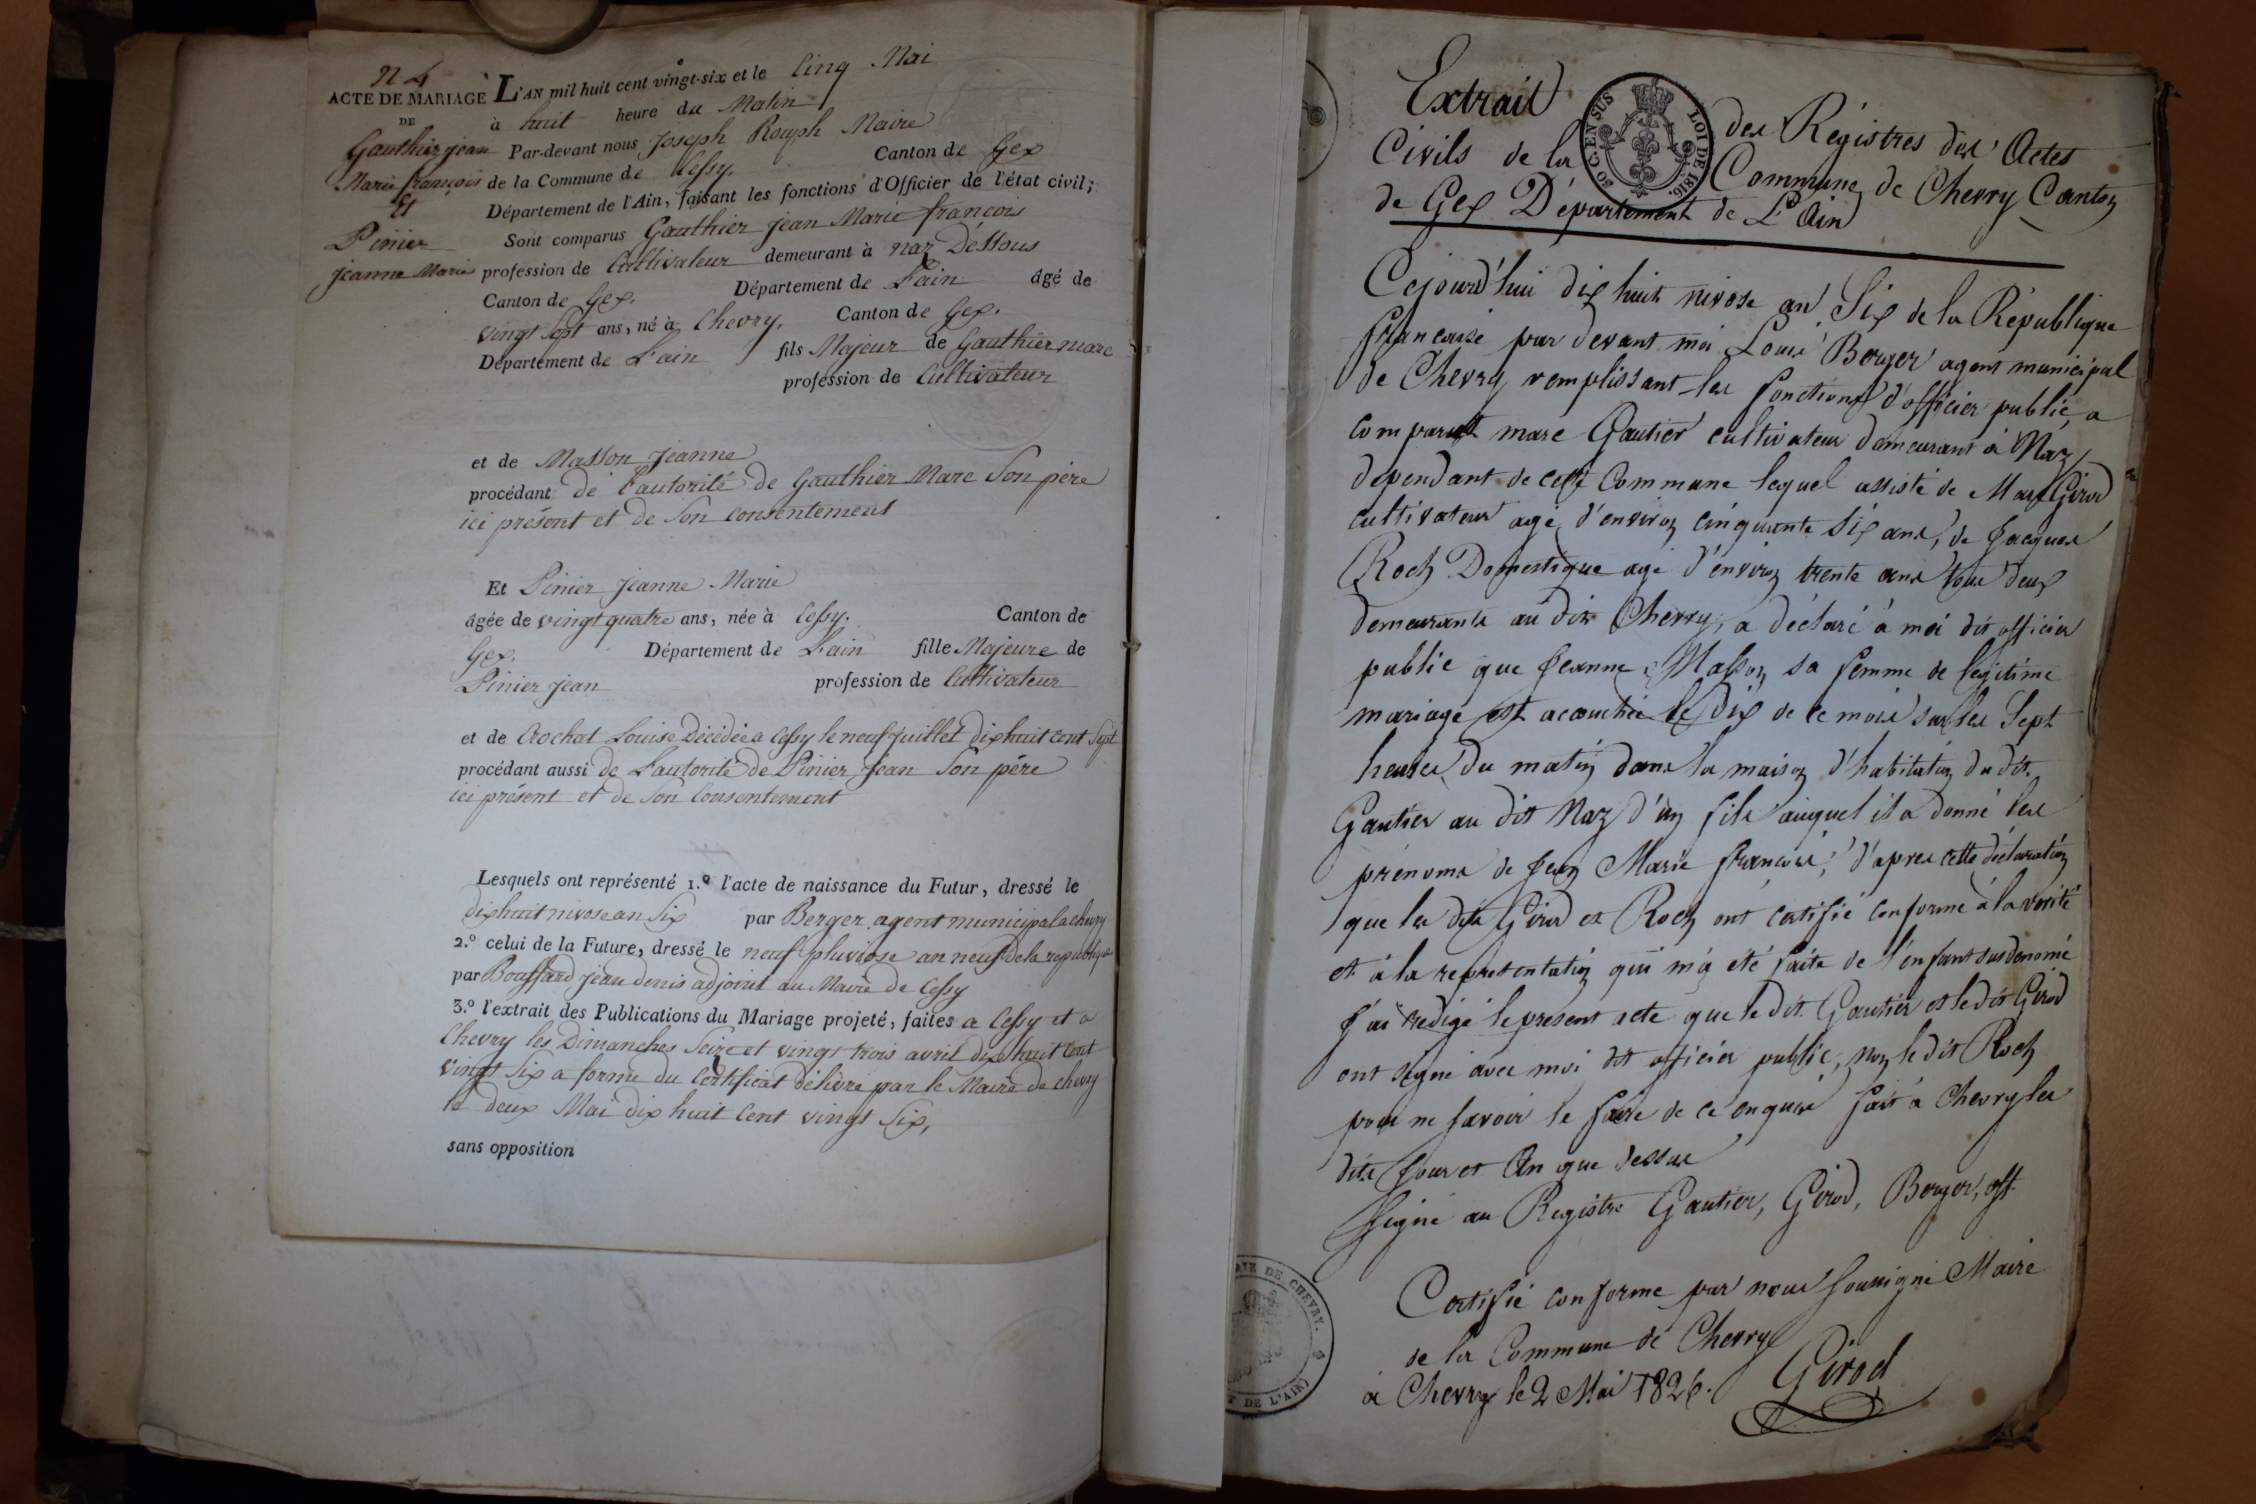 N 4
ACTE DE MARIAGE
DE
Gauthier jean
Marie françois
Et
Pinier
jeanne Marie
L'AN mil huit cent vingt-six et le Cinq Mai
à huit heure du Matin
Par-devant nous Joseph Rouph Maire
de la Commune de Cessy. Canton de Gex
Département de l'Ain, faisant les fonctions d'Officier de l'état civil;
Sont comparus Gauthier jean Marie françois
profession de Cultivateur demeurant à naz Déssous
Canton de Gex. Département de L'ain âgé de
vingt sept ans, né à Chevry, Canton de Gex.
Département de L'ain fils Majeur de Gauthier marc
profession de Cultivateur
et de Masson Jeanne
procédant de l'autorité de Gauthier Marc Son père
ici présent et de Son consentement
Et Pinier jeanne Marie
âgée de vingt quatre ans, née à Cessy. Canton de
Gex. Département de L'ain fille Majeure de
Pinier jean profession de Cultivateur
et de Crochat Louise Décédée a Cessy le neuf juillet dix huit cent Sept
procédant aussi de L'autorité de Pinier Jean Son père
ici présent et de Son Consentement
Lesquels ont représenté 1.º l'acte de naissance du Futur, dressé le
dix huit nivose an Six par Berger agent municipal a chevry
2.º celui de la Future, dressé le neuf pluviose an neuf de la republique
par Bouffard jean denis adjoint au Maire de Cessy
3.º l'extrait des Publications du Mariage projeté, faites a Cessy et a
Chevry les Dimanches Seize et vingt trois avril dix huit cent
vingt Six a forme du Certificat délivré par le Maire de chevry
le deux Mai dix huit Cent vingt Six,
sans opposition
Extrait des Régistres des Actes
Civils de la Commune de Chevry Canton
de Gex Département de L'Ain
80 C. EN SUS
LOI DE 1816.
Cejourd'hui dix huit nivose an Six de la République
francaise par devant moi Louis Berger agent municipal
de Chevry remplissant les fonctions d'officier public, a
comparut marc Gautier cultivateur demeurant à Naz
dependant de cette Commune lequel assisté de Marc Girod
cultivateur agé d'environ cinquante six ans, de Jacques
Roch Domestique agé d'environ trente ans tous deux
demeurants au dit Chevry, a déclaré à moi dit officier
public que Jeanne Masson sa femme de legitime
mariage est acouchée le Dix de ce mois sur les Sept
heures du matin dans la maison d'habitation du dit
Gautier au dit Naz d'un fils auquel il a donné les
prénoms de Jean Marie francois; d'apres cette déclaration
que les dits Girod et Roch ont certifié conforme à la vérité
et à la representation qui m'a été faite de l'enfant susdenomé
J'ai redigé le present acte que le dit Gautier et le dit Girod
ont signé avec moi dit officier public, non le dit Roch
pour ne savoir le faire de ce enquis fait à Chevry les
dits Jour et An que dessus
Signé au Registre Gautier, Girod, Berger, off.
Certifié conforme par nous Soussigné Maire
de la Commune de Chevry
à Chevry le 2 Mai 1826. Girod
DE CHEVRY.
DE L'AIN